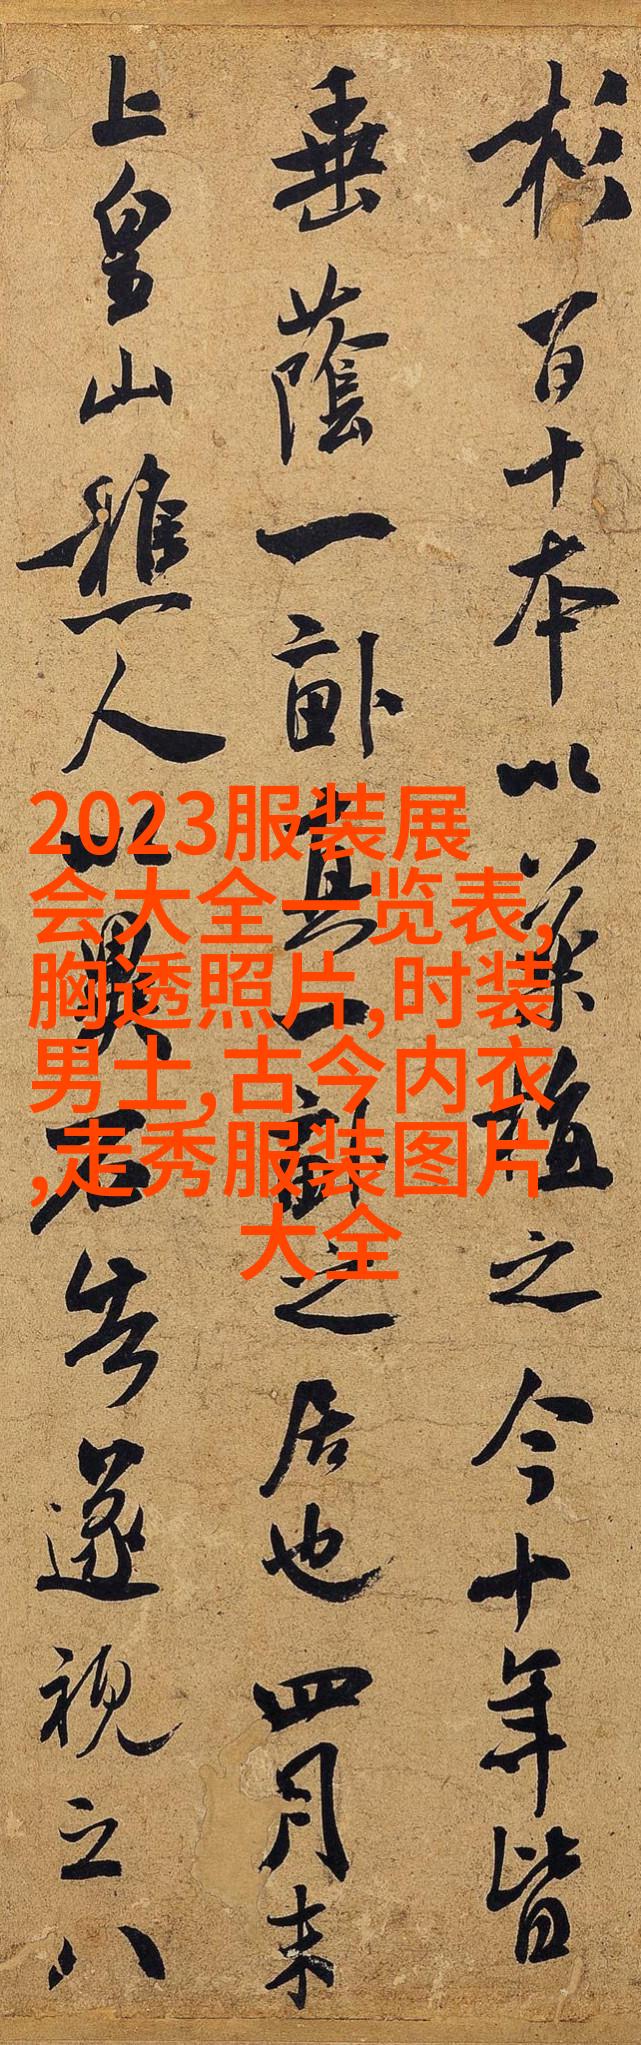 杉百十本以藥植之今十年皆
垂蔭一畝真一畝之居也四月末
上皇山樵人以異石告遂視之八
2023服装展
会大全一览表,
胸透照片,时装
男士,古今内衣
,走秀服装图片
大全